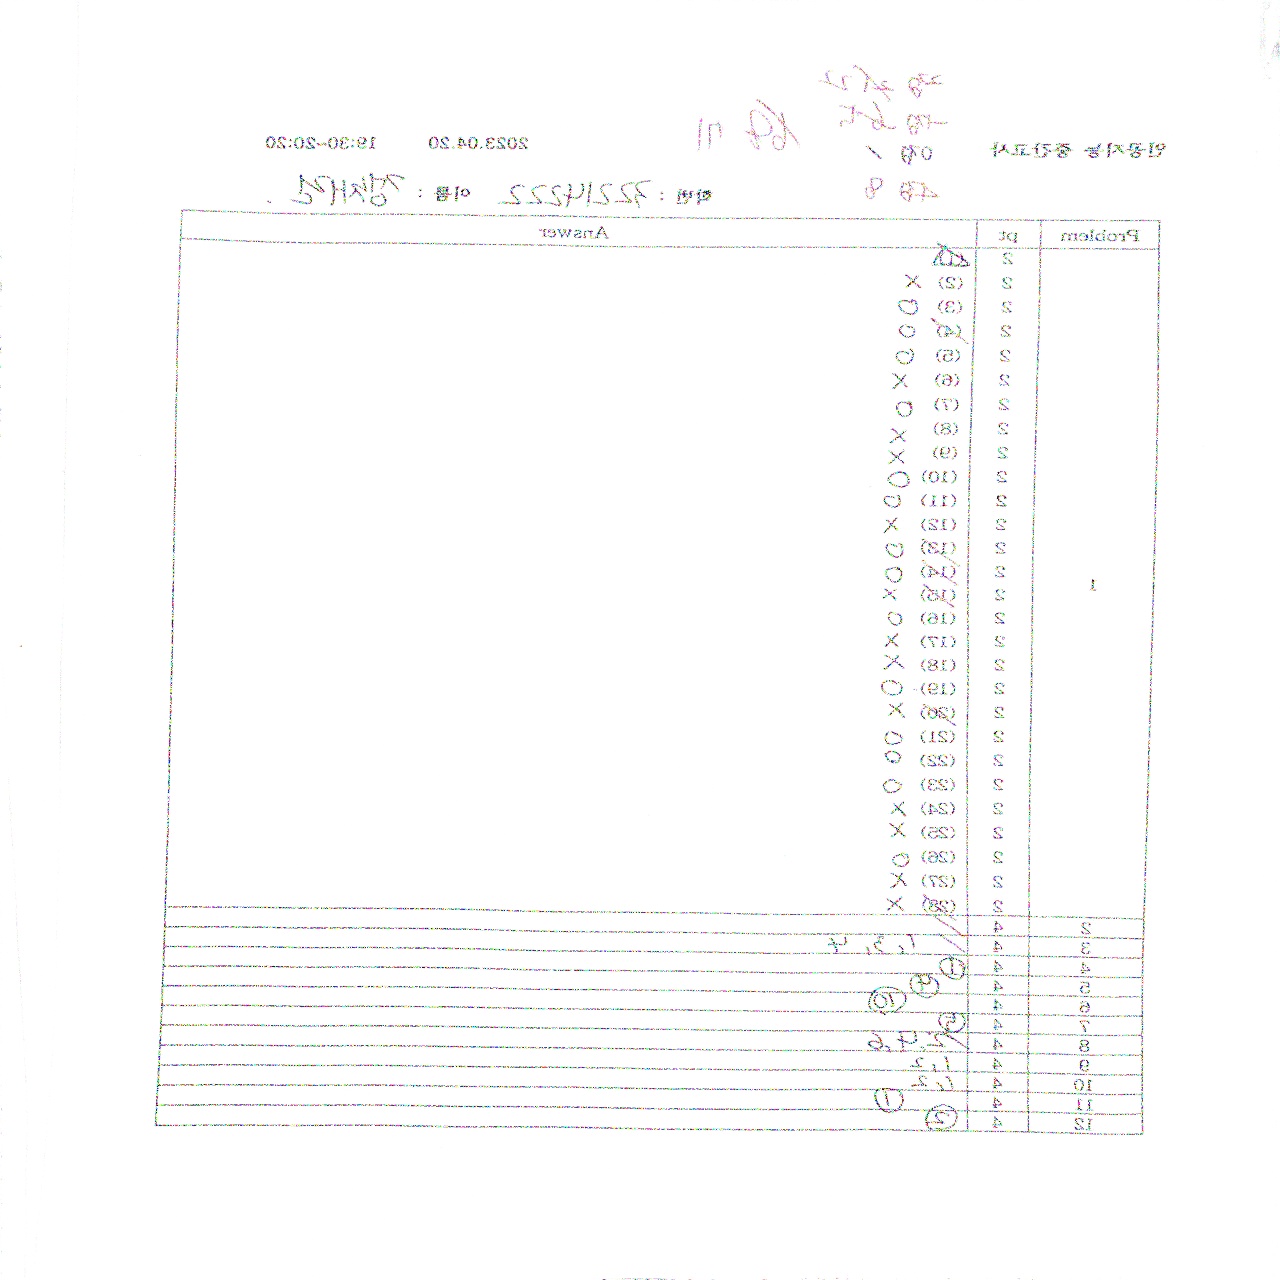 인공지능 중간고사 2023.04.20 19:30~20:20
학번 : 32214222 이름 :
Problem pt Answer
1
2
2 (2) X
2 (3) O
2 (4) O
2 (5) O
2 (6) X
2 (7) O
2 (8) X
2 (9) X
2 (10) O
2 (11) O
2 (12) X
2 (13) O
2 (14) O
2 (15) X
2 (16) O
2 (17) X
2 (18) X
2 (19) O
2 (20) X
2 (21) O
2 (22) O
2 (23) O
2 (24) X
2 (25) X
2 (26) O
2 (27) X
2 (28) X
2 4
3 4 1, 3, 4
4 4 ①
5 4
6 4 ⑩
7 4 ⑤
8 4 2, 4, 6
9 4 1, 2
10 4 1, 2
11 4 ①
12 4 ②